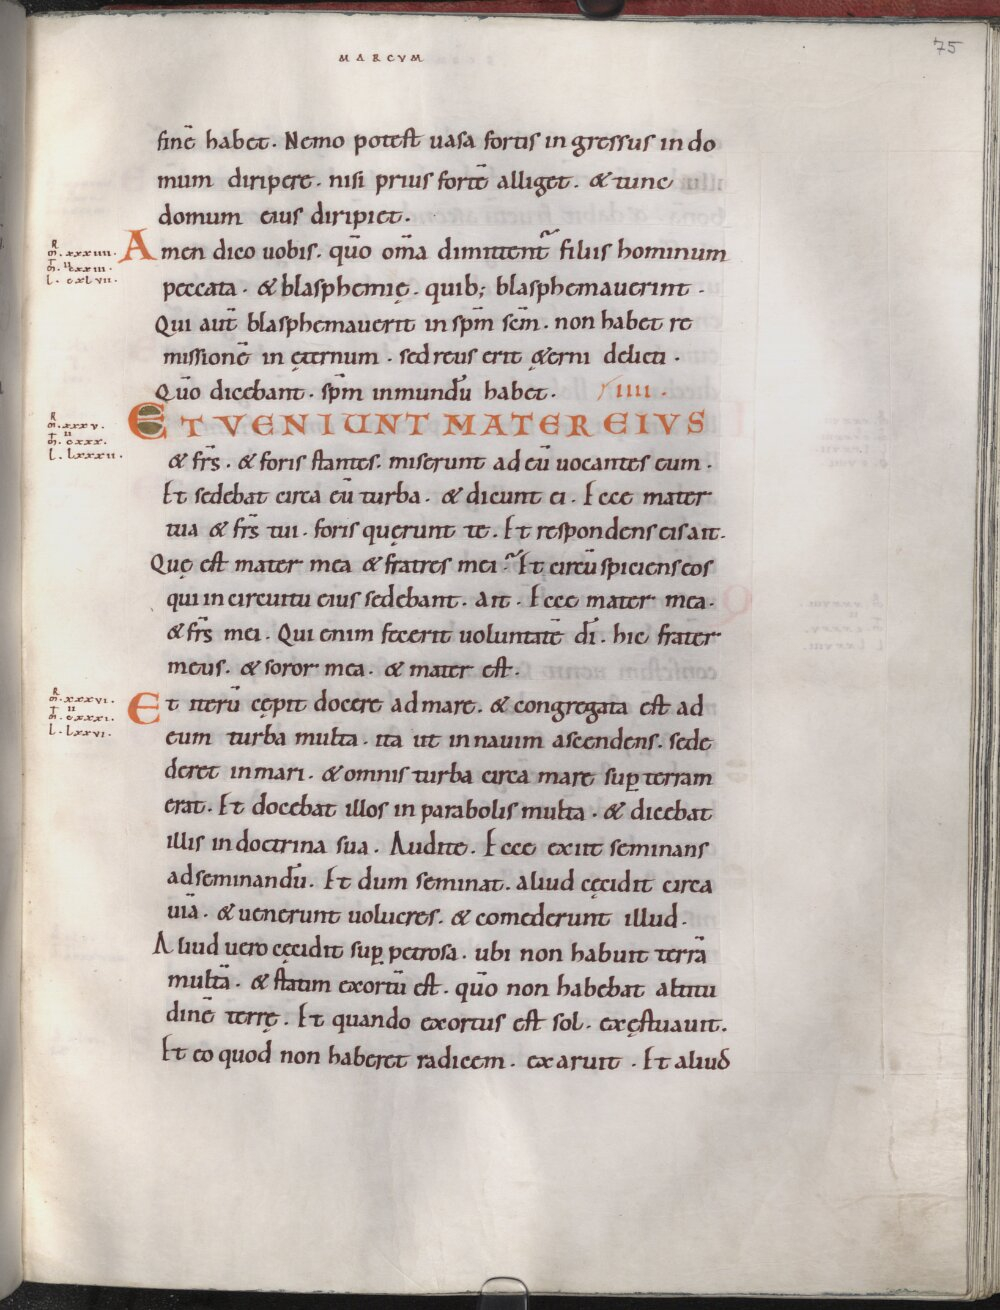 MARCVM
75
finē habet. Nemo potest uasa fortis ingressus in do
mum diripere. nisi prius fortē alliget. & tunc
domum eius diripiet.
R
M. xxxiiii.
Amen dico uobis. quō om̄a dimittent᷑ filiis hominum
L. cxlvii.
peccata. & blasphemię. quib; blasphemauerint.
Qui aut̄ blasphemauerit in sp̄m sc̄m. non habet re
missionē in ęternum. sed reus erit ęterni delicti.
Quō dicebant. sp̄m inmundū habet. IIII.
R
M. xxxv.
ET VENIUNT MATER EIVS
II
cxxx.
L. lxxxii.
& fr̄s. & foris stantes. miserunt ad eū uocantes eum.
Et sedebat circa eū turba. & dicunt ei. Ecce mater
tua & fr̄s tui. foris quęrunt te. Et respondens eis ait.
Quę est mater mea & fratres mei? Et circūspiciens eos
qui in circuitu eius sedebant. ait. Ecce mater mea.
& fr̄s mei. Qui enim fecerit uoluntatē dī. hic frater
meus. & soror mea. & mater est.
R
M. xxxvi.
Et iterū cępit docere ad mare. & congregata est ad
II
cxxxi.
L. lxxvi.
eum turba multa. ita ut in nauim ascendens. sede
deret in mari. & omnis turba circa mare sup̱ terram
erat. Et docebat illos in parabolis multa. & dicebat
illis in doctrina sua. Audite. Ecce exiit seminans
ad seminandū. Et dum seminat. aliud cęcidit circa
uiā. & uenerunt uolucres. & comederunt illud.
Aliud uero cęcidit sup̱ petrosa. ubi non habuit terrā
multā. & statim exortū est. quō non habebat altitu
dinē terrę. Et quando exortus est sol. exęstuauit.
Et eo quod non haberet radicem. exaruit. Et aliud